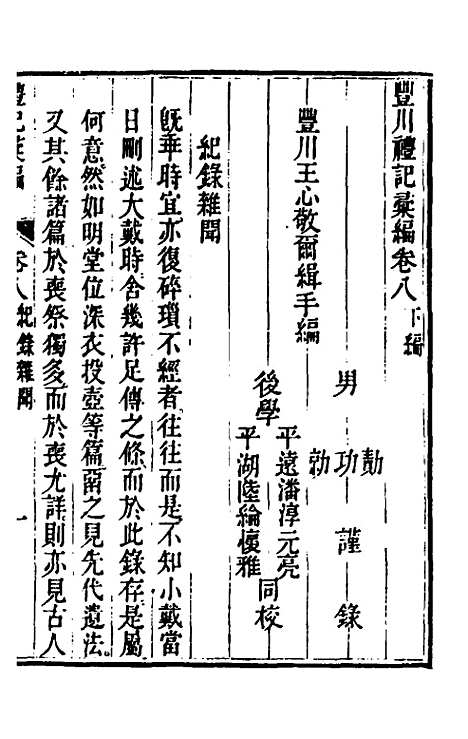 豐川禮記彙編卷八 下編
豐川王心敬爾緝手編
男 勍功勃 謹錄
後學
平遠潘淳元亮
平湖陸綸櫌雅
同校
紀錄雜聞
旣乖時宜亦復碎瑣不經者往往而是不知小戴當
日刪述大戴時舍幾許足傳之條而於此錄存是屬
何意然如明堂位深衣投壺等篇畱之見先代遺法
又其餘諸篇於喪祭獨多而於喪尤詳則亦見古人
豐記彙編 卷八 紀錄雜聞 一